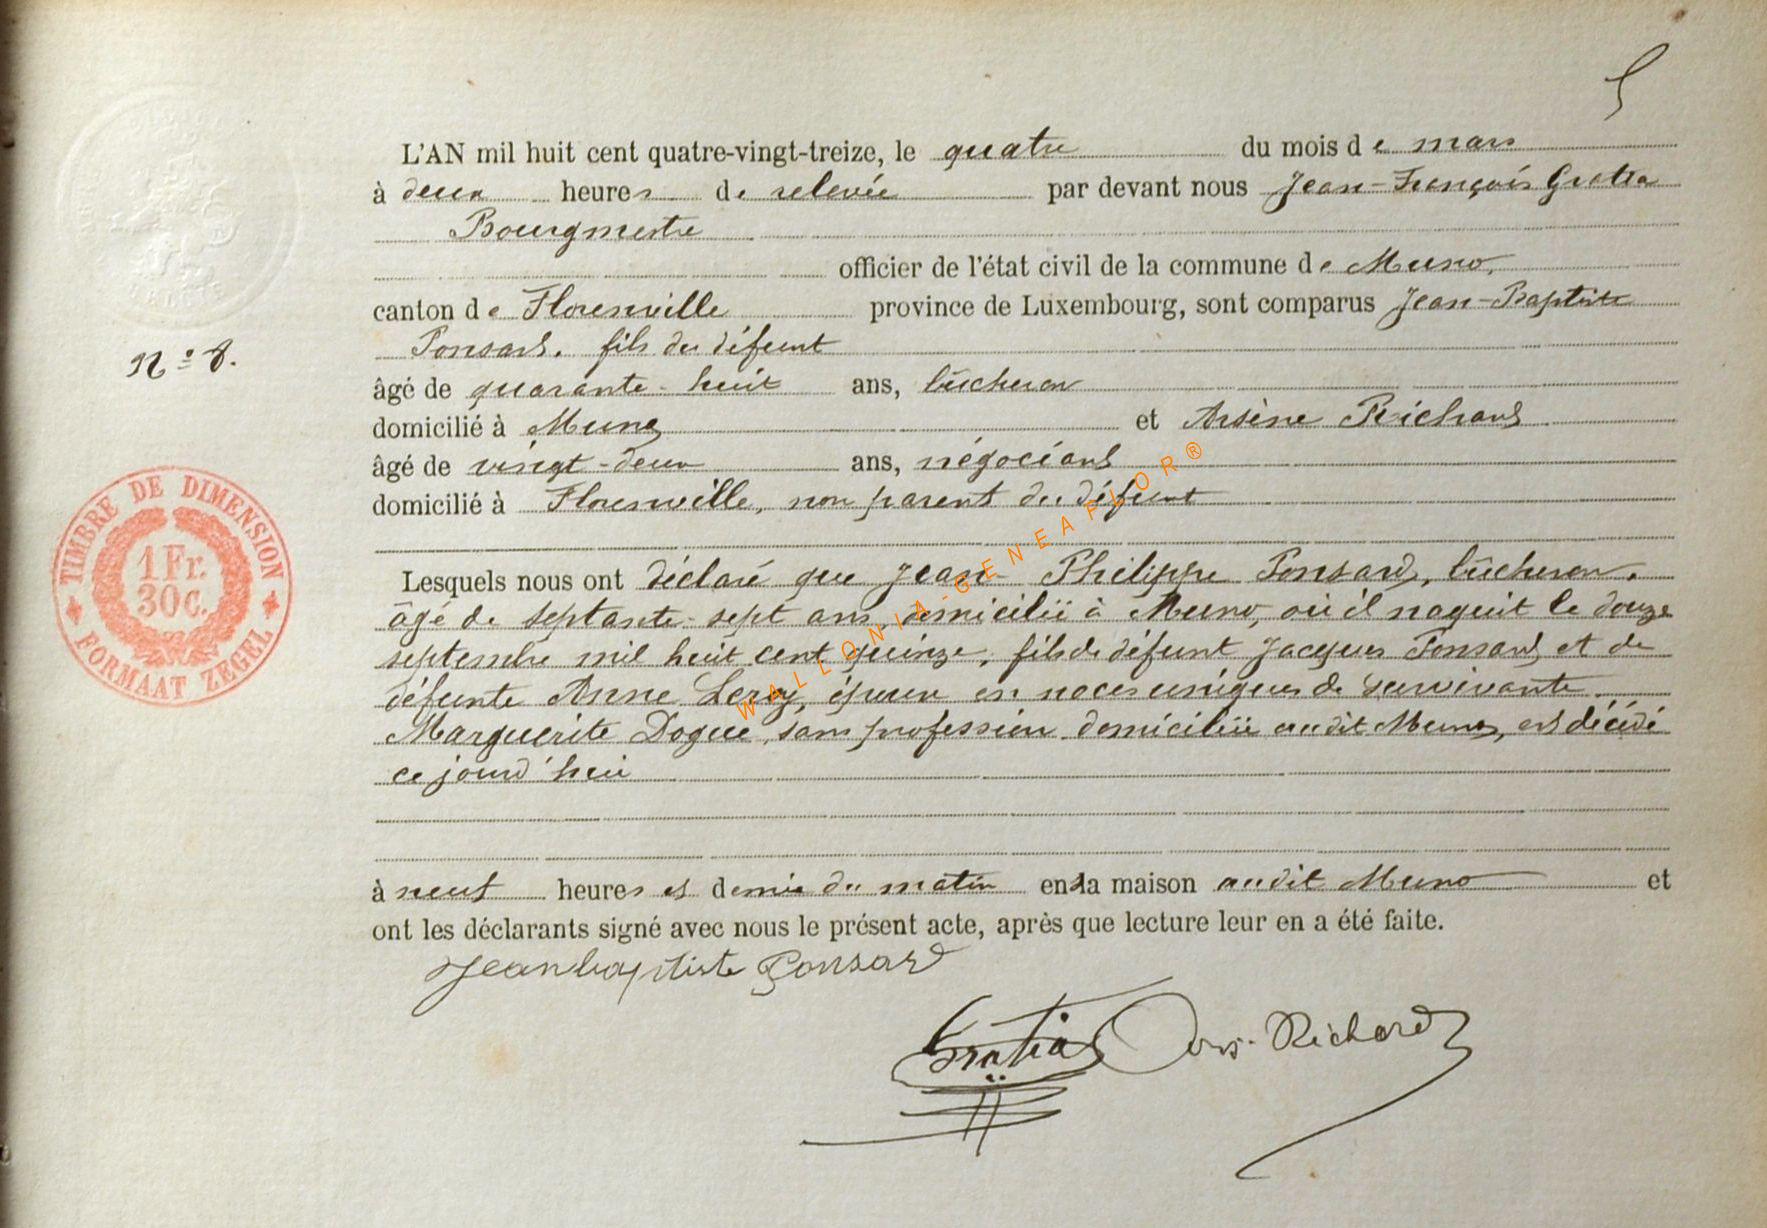 5
L'AN mil huit cent quatre-vingt-treize, le quatre du mois de mars
à deux heures de relevée par devant nous Jean-François Gratia
Bourgmestre
officier de l'état civil de la commune de Muno,
canton de Florenville province de Luxembourg, sont comparus Jean-Baptiste
Ponsard, fils du défunt
N° 8.
âgé de quarante-huit ans, bûcheron
domicilié à Muno et Arsène Richard
âgé de vingt-deux ans, négociant
domicilié à Florenville, non parent du défunt
Lesquels nous ont déclaré que Jean-Philippe Ponsard, bûcheron,
âgé de septante-sept ans, domicilié à Muno, où il naquit le douze
septembre mil huit cent quinze, fils de défunt Jacques Ponsard et de
défunte Anne Leroy, époux en noces uniques de survivante
Marguerite Dogue, sans profession domiciliée audit Muno, est décédé
ce jourd'hui
à neuf heures et demie du matin en sa maison audit Muno et
ont les déclarants signé avec nous le présent acte, après que lecture leur en a été faite.
Jean baptiste Ponsard
Gratia Ars. Richard
TIMBRE DE DIMENSION
1 Fr.
30 C.
FORMAAT ZEGEL
WALLONIA-GENEAFLOR®